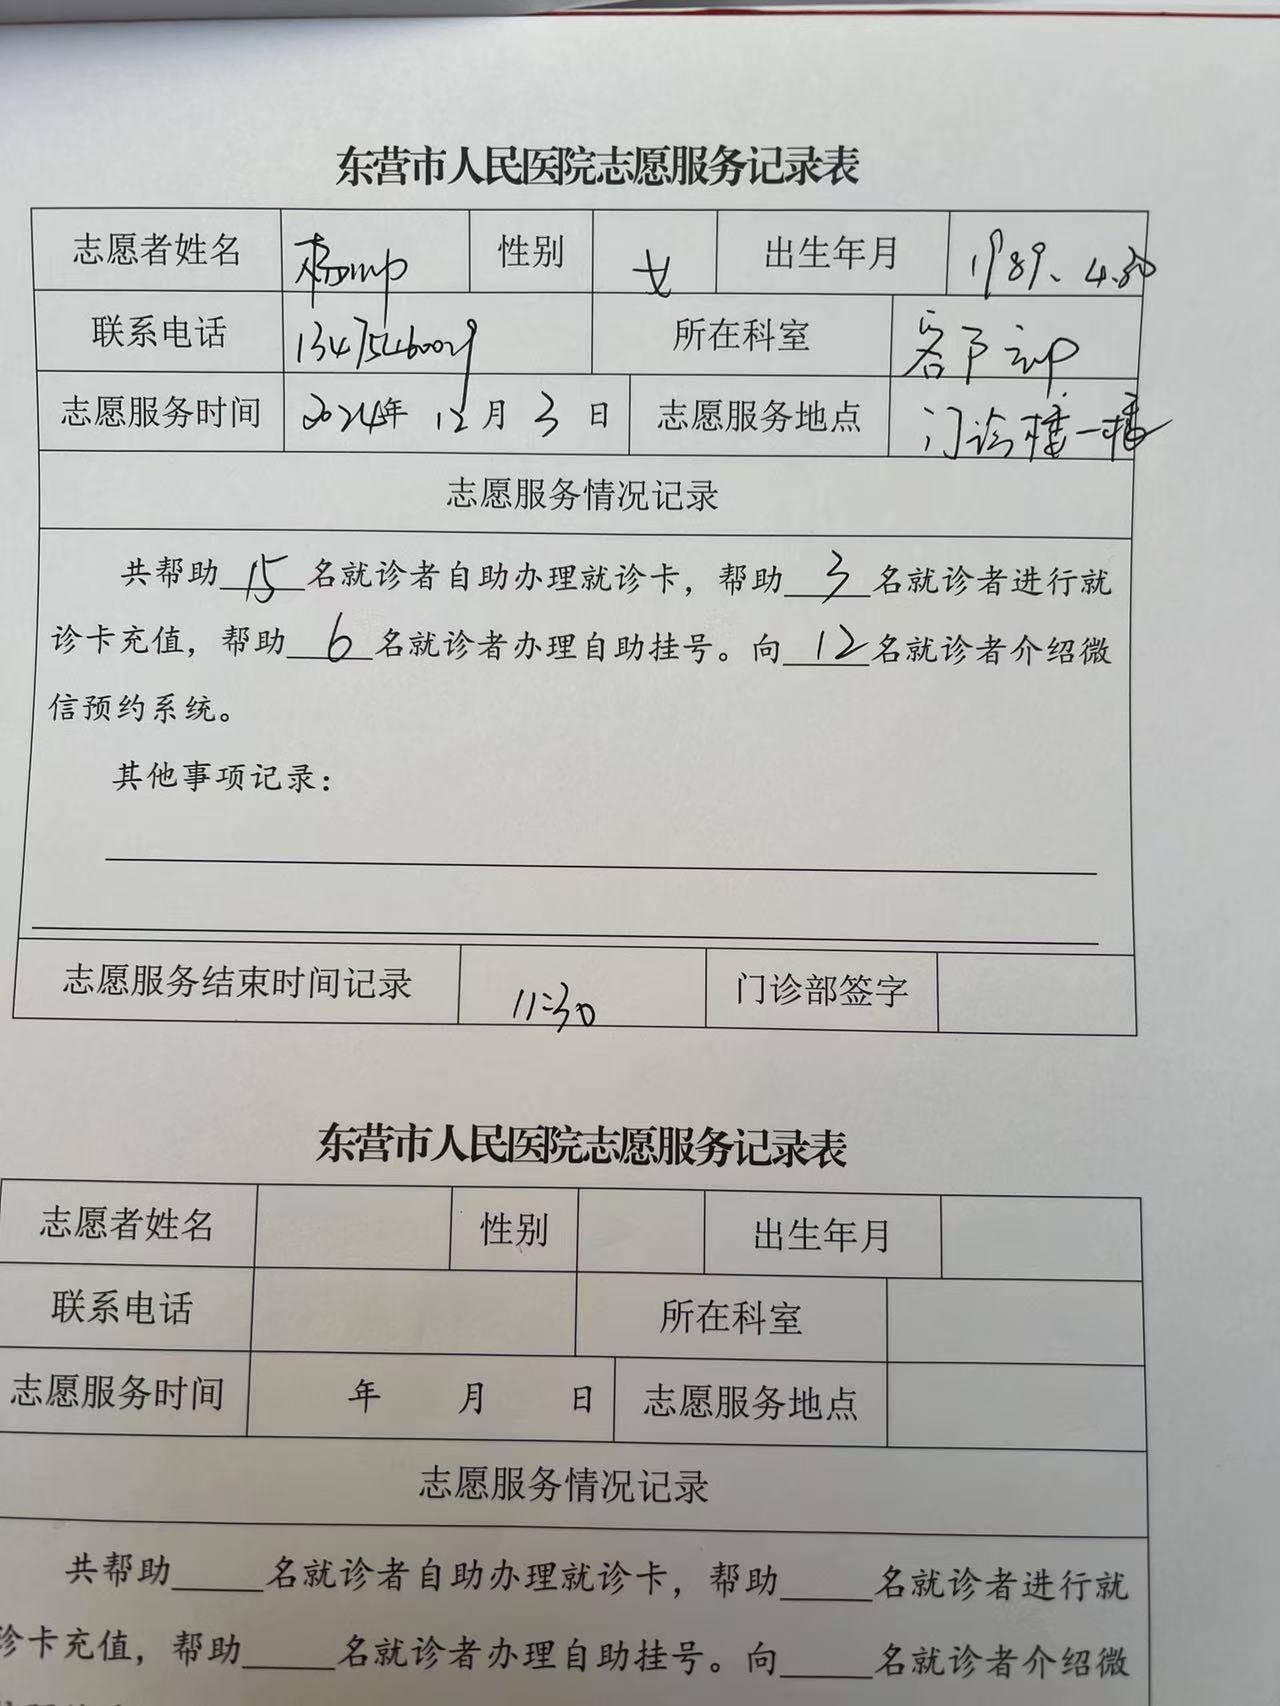 东营市人民医院志愿服务记录表
志愿者姓名 性别 女 出生年月 1989、4.30
联系电话 13475460029 所在科室
志愿服务时间 2024年 12月 3日 志愿服务地点 门诊楼一楼
志愿服务情况记录
共帮助15名就诊者自助办理就诊卡，帮助3名就诊者进行就
诊卡充值，帮助6名就诊者办理自助挂号。向12名就诊者介绍微
信预约系统。
其他事项记录：
志愿服务结束时间记录 11:30 门诊部签字
东营市人民医院志愿服务记录表
志愿者姓名 性别 出生年月
联系电话 所在科室
志愿服务时间 年 月 日 志愿服务地点
志愿服务情况记录
共帮助_____名就诊者自助办理就诊卡，帮助_____名就诊者进行就
诊卡充值，帮助_____名就诊者办理自助挂号。向_____名就诊者介绍微